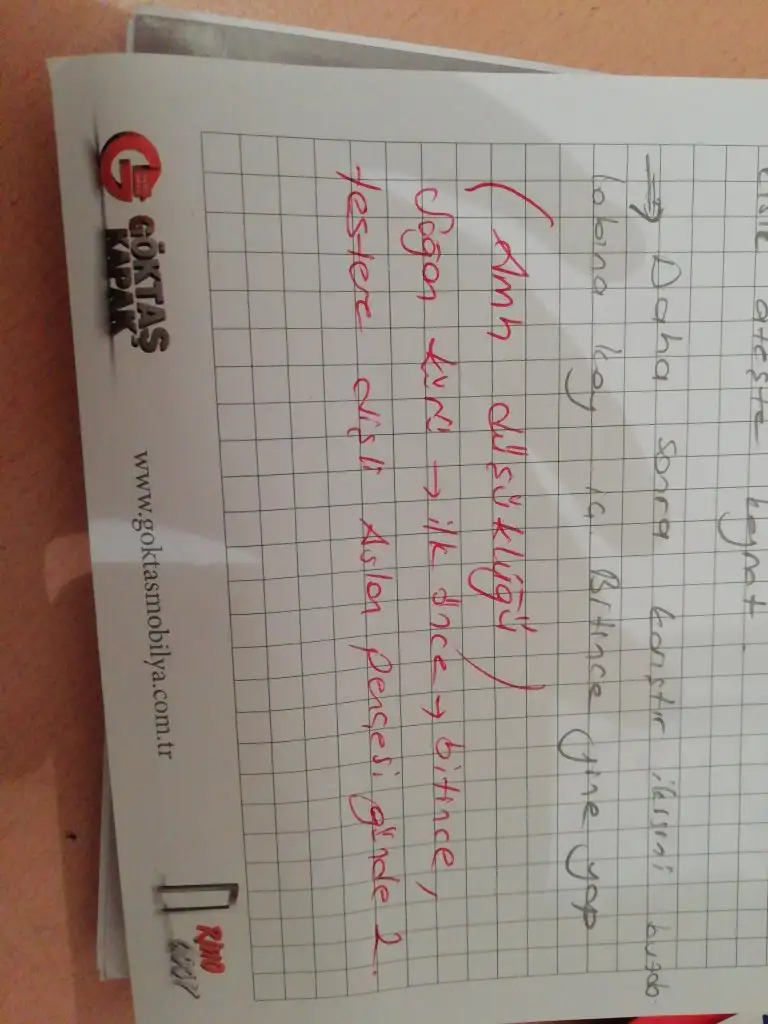 ateşte kaynat.
→ Daha sonra karıştır ikisini buzdo
labına koy iç. Bitince yine yap
(Amh düşüklüğü)
Soğan kürü → ilk önce → bitince,
testere dişli Aslan pençesi günde 2
GÖKTAŞ
KAPAK
www.goktasmobilya.com.tr